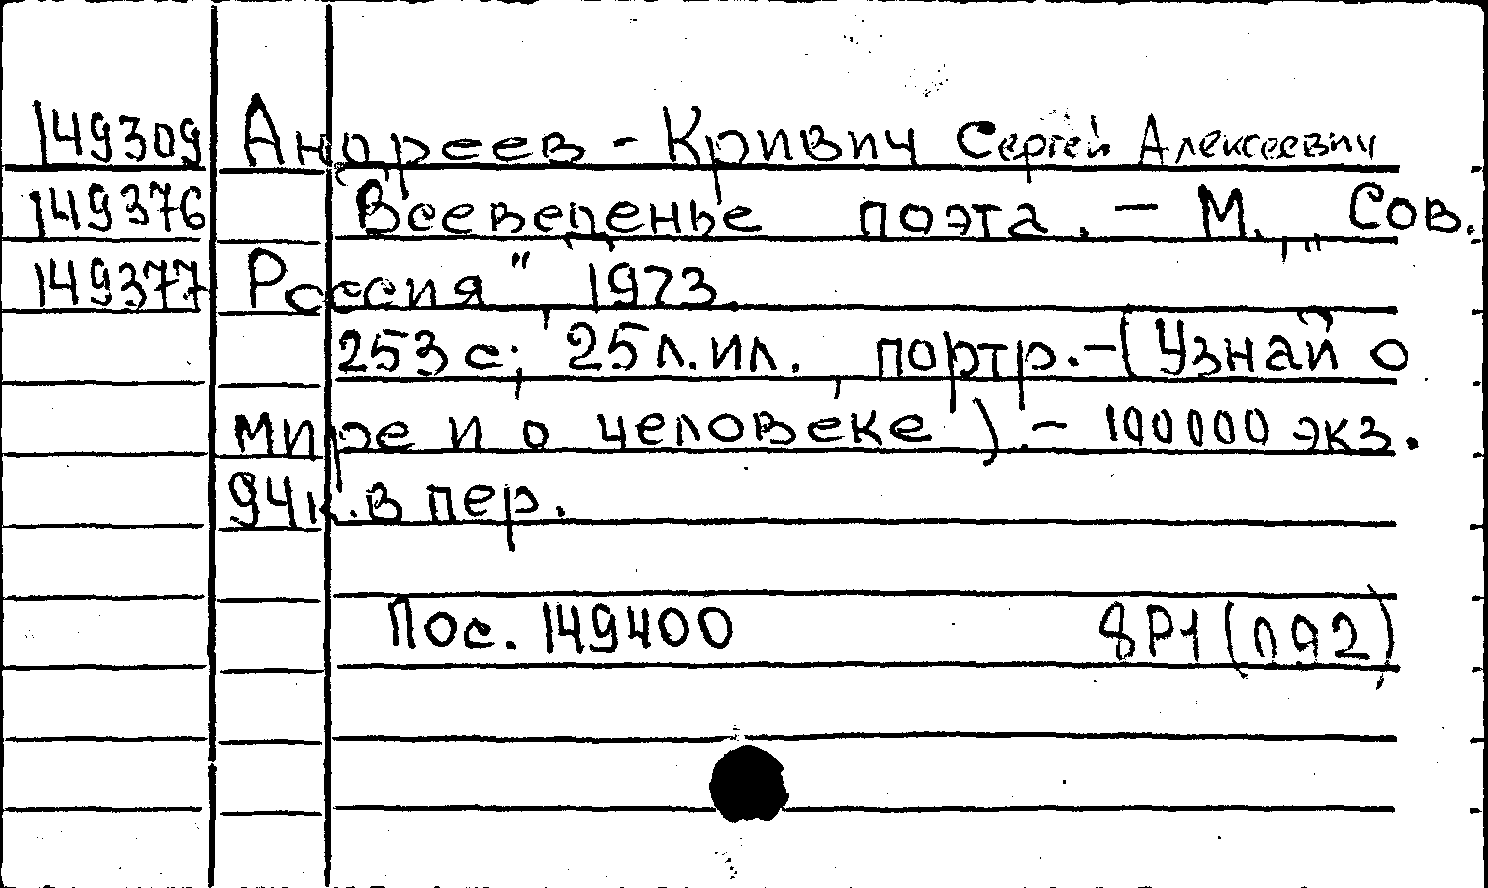 149309 Андреев - Кривич Сергей Алексеевич
149376 Всеведенье поэта. - М., „Сов.
149377 Россия", 1973.
253 с; 25 л. ил., портр. - (Узнай о
мире и о человеке). - 100000 экз.
94к. в пер.
Пос. 149400 8Р1(092)